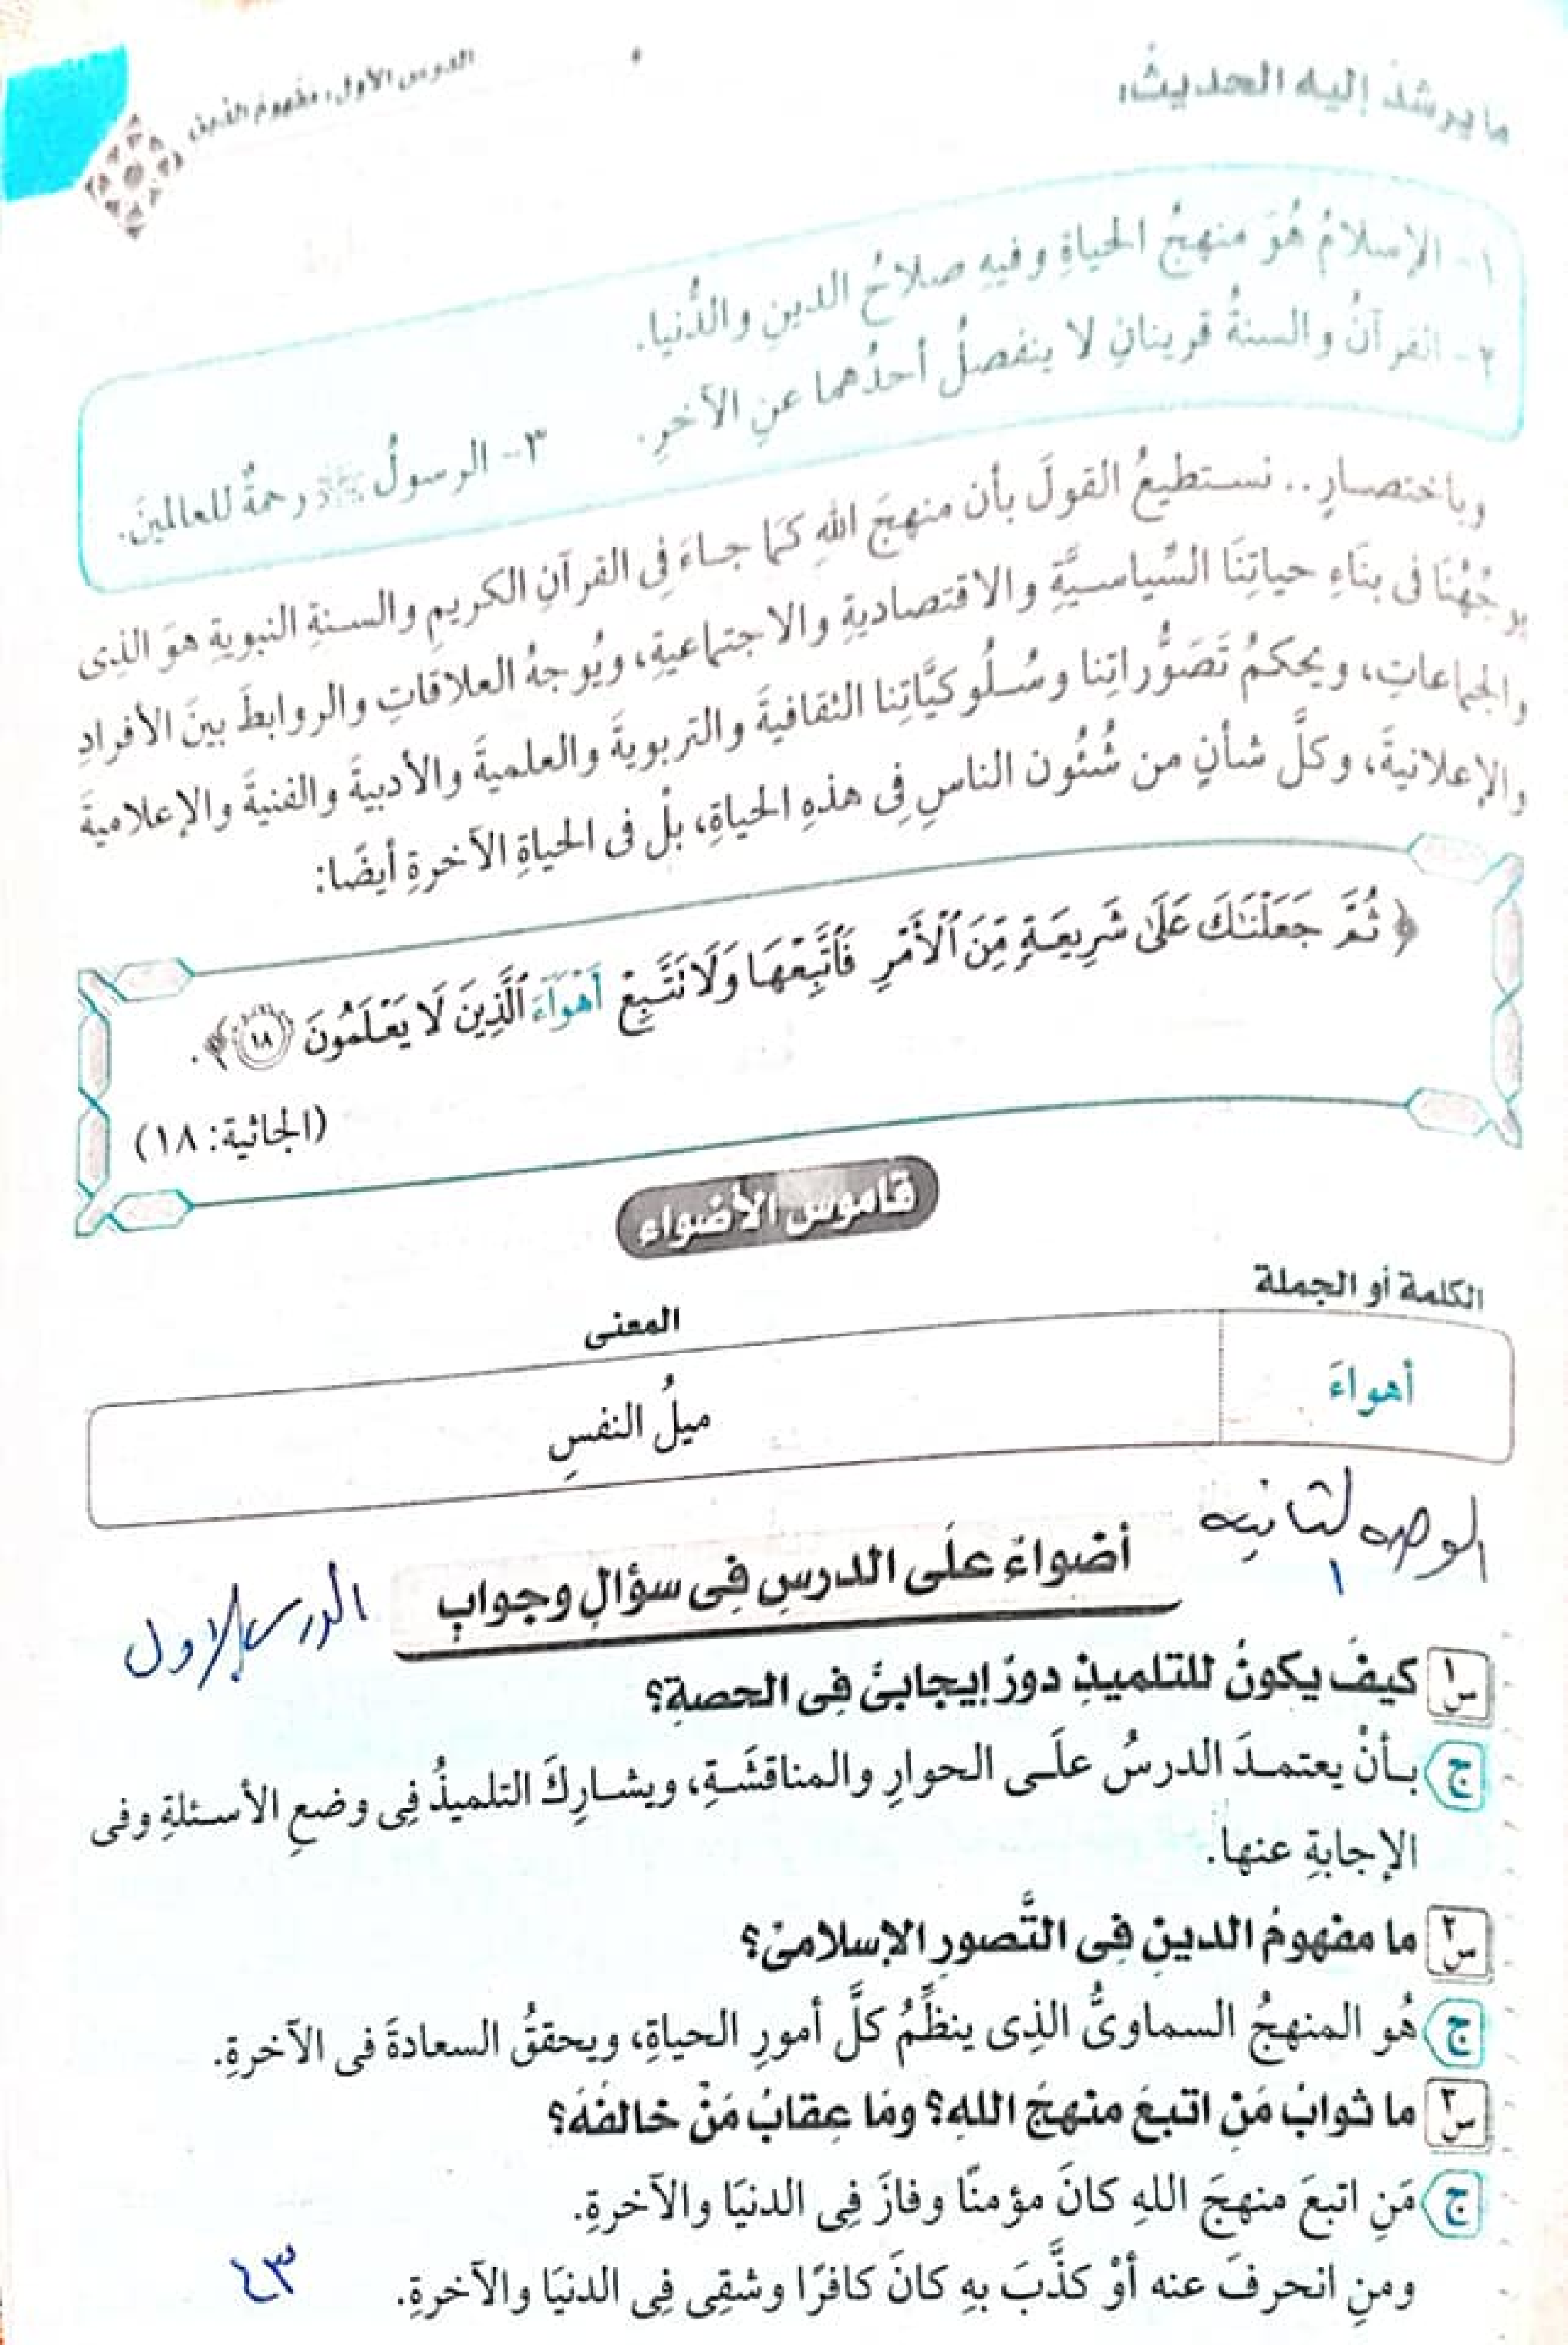 الدرس الأول: مفهوم الدين
ما يرشدُ إليه الحديثُ:
١- الإسلامُ هُوَ منهجُ الحياةِ وفيهِ صلاحُ الدينِ والدُّنيا.
٢- القرآنُ والسنةُ قرينانِ لا ينفصلُ أحدُهما عنِ الآخرِ.
٣- الرسولُ ﷺ رحمةٌ للعالمينَ.
وباختصارٍ.. نستطيعُ القولَ بأن منهجَ اللهِ كَمَا جاءَ فِى القرآنِ الكريمِ والسنةِ النبويةِ هوَ الذِى
يوجِّهُنَا فى بنَاءِ حياتِنَا السِّياسيَّةِ والاقتصاديةِ والاجتماعيةِ، ويُوجهُ العلاقاتِ والروابطَ بينَ الأفرادِ
والجماعاتِ، ويحكمُ تَصَوُّراتِنا وسُلُوكيَّاتِنا الثقافيةَ والتربويةَ والعلميةَ والأدبيةَ والفنيةَ والإعلاميةَ
والإعلانيةَ، وكلَّ شأنٍ من شُئُون الناسِ فِى هذهِ الحياةِ، بلْ فى الحياةِ الآخرةِ أيضًا:
﴿ ثُمَّ جَعَلْنَٰكَ عَلَىٰ شَرِيعَةٍ مِّنَ ٱلْأَمْرِ فَٱتَّبِعْهَا وَلَا تَتَّبِعْ أَهْوَآءَ ٱلَّذِينَ لَا يَعْلَمُونَ ١٨ ﴾.
(الجاثية: ١٨)
قاموس الأضواء
الكلمة أو الجملة
المعنى
أهواءَ
ميلُ النفسِ
الوحده الثانيه
١
أضواءٌ علَى الدرسِ فِى سؤالٍ وجوابٍ
الدرس الاول
س١ كيفَ يكونُ للتلميذِ دورٌ إيجابىٌّ فِى الحصةِ؟
ج بأنْ يعتمدَ الدرسُ علَى الحوارِ والمناقشَةِ، ويشارِكَ التلميذُ فِى وضعِ الأسئلةِ وفى
الإجابةِ عنها.
س٢ ما مفهومُ الدينِ فِى التَّصورِ الإسلامىِّ؟
ج هُو المنهجُ السماوىُّ الذِى ينظِّمُ كلَّ أمورِ الحياةِ، ويحققُ السعادةَ فى الآخرةِ.
س٣ ما ثوابُ مَنِ اتبعَ منهجَ اللهِ؟ ومَا عِقابُ مَنْ خالفَهُ؟
ج مَنِ اتبعَ منهجَ اللهِ كانَ مؤمنًا وفازَ فِى الدنيَا والآخرةِ.
ومنِ انحرفَ عنه أوْ كذَّبَ بهِ كانَ كافرًا وشقِى فِى الدنيَا والآخرةِ.
٤٣